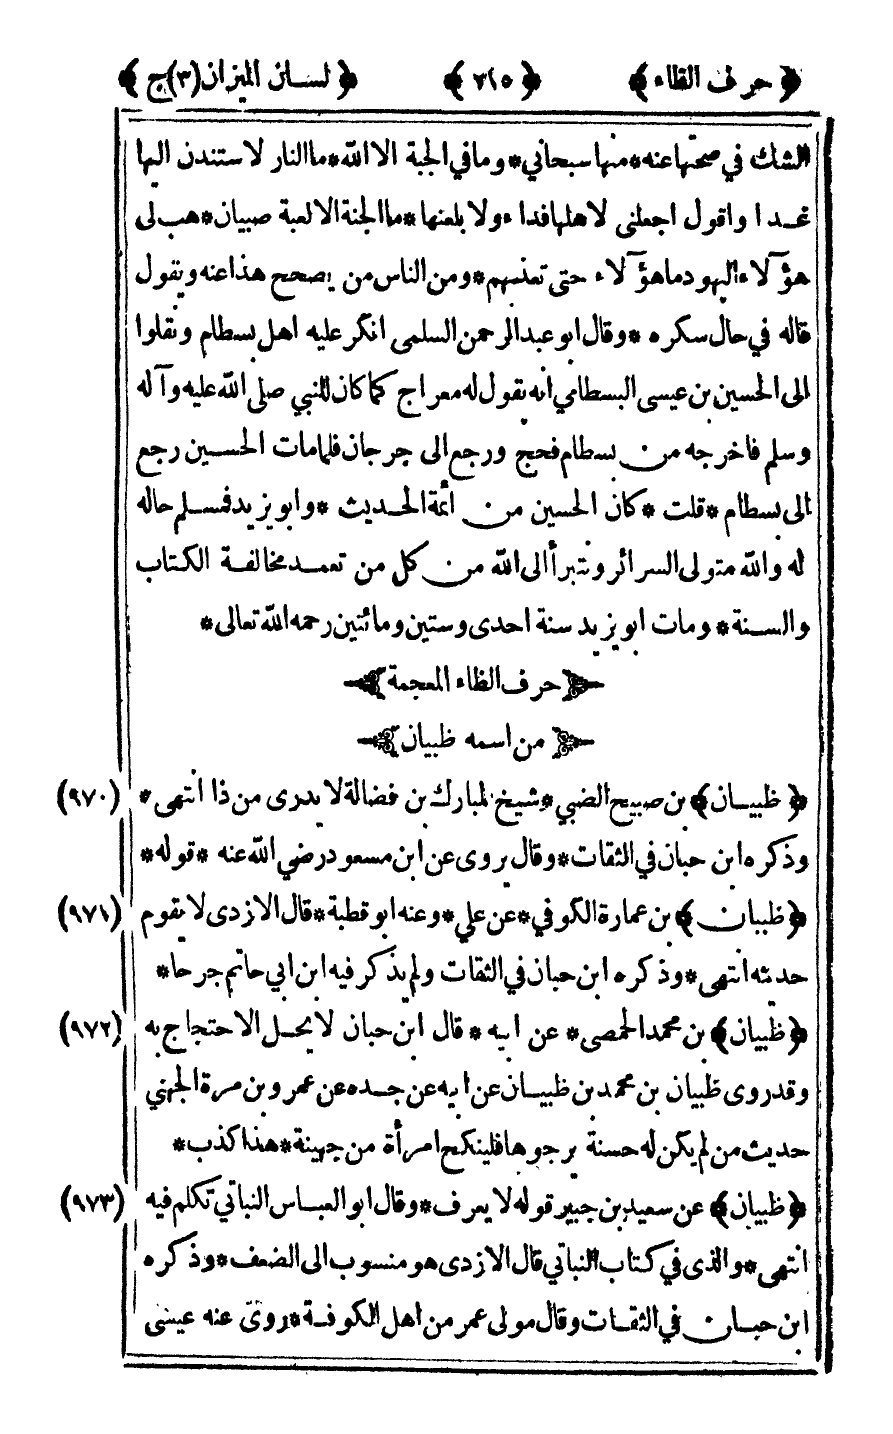 ﴿ حرف الظاء ﴾ ﴿ ٢١٥ ﴾ ﴿ لسان الميزان (٣) ج ﴾
الشك في صحتها عنه * منها سبحاني * وما في الجبة الا الله * ما النار لاستندن اليها
غدا واقول اجعلني لاهلها فداء ولا بلعنها * ما الجنة الا لعبة صبيان * هب لى
هؤلاء اليهود ما هؤلاء حتى تعذبهم * ومن الناس من يصحح هذا عنه ويقول
قاله في حال سكره * وقال ابو عبد الرحمن السلمى انكر عليه اهل بسطام ونقلوا
الى الحسين بن عيسى البسطامي انه يقول له معراج كما كان للنبي صلى الله عليه وآله
وسلم فاخرجه من بسطام فحج ورجع الى جرجان فلما مات الحسين رجع
الى بسطام * قلت * كان الحسين من ائمة الحديث * وابو يزيد فسلم حاله
له والله متولى السرائر ونتبرأ الى الله من كل من تعمد مخالفة الكتاب
والسنة * ومات ابو يزيد سنة احدى وستين ومائتين رحمه الله تعالى *
﴿ حرف الظاء المعجمة ﴾
﴿ من اسمه ظبيان ﴾
﴿ ظبيان ﴾ بن صبيح الضبي * شيخ لمبارك بن فضالة لا يدرى من ذا انتهى * (٩٧٠)
وذكره ابن حبان في الثقات * وقال يروى عن ابن مسعود رضي الله عنه * قوله *
﴿ ظبيان ﴾ بن عمارة الكوفي * عن علي * وعنه ابو قطبة * قال الازدى لا يقوم (٩٧١)
حديثه انتهى * وذكره ابن حبان في الثقات ولم يذكر فيه ابن ابي حاتم جرحا *
﴿ ظبيان ﴾ بن محمد الحمصى * عن ابيه * قال ابن حبان لا يحل الاحتجاج به (٩٧٢)
وقد روى ظبيان بن محمد بن ظبيان عن ابيه عن جده عن عمرو بن مرة الجهني
حديث من لم يكن له حسنة يرجوها فلينكح امرأة من جهينة * هذا كذب *
﴿ ظبيان ﴾ عن سعيد بن جبير قوله لا يعرف * وقال ابو العباس النباتي تكلم فيه (٩٧٣)
انتهى * والذى في كتاب النباتي قال الازدى هو منسوب الى الضعف * وذكره
ابن حبان في الثقات وقال مولى عمر من اهل الكوفة * روى عنه عيسى